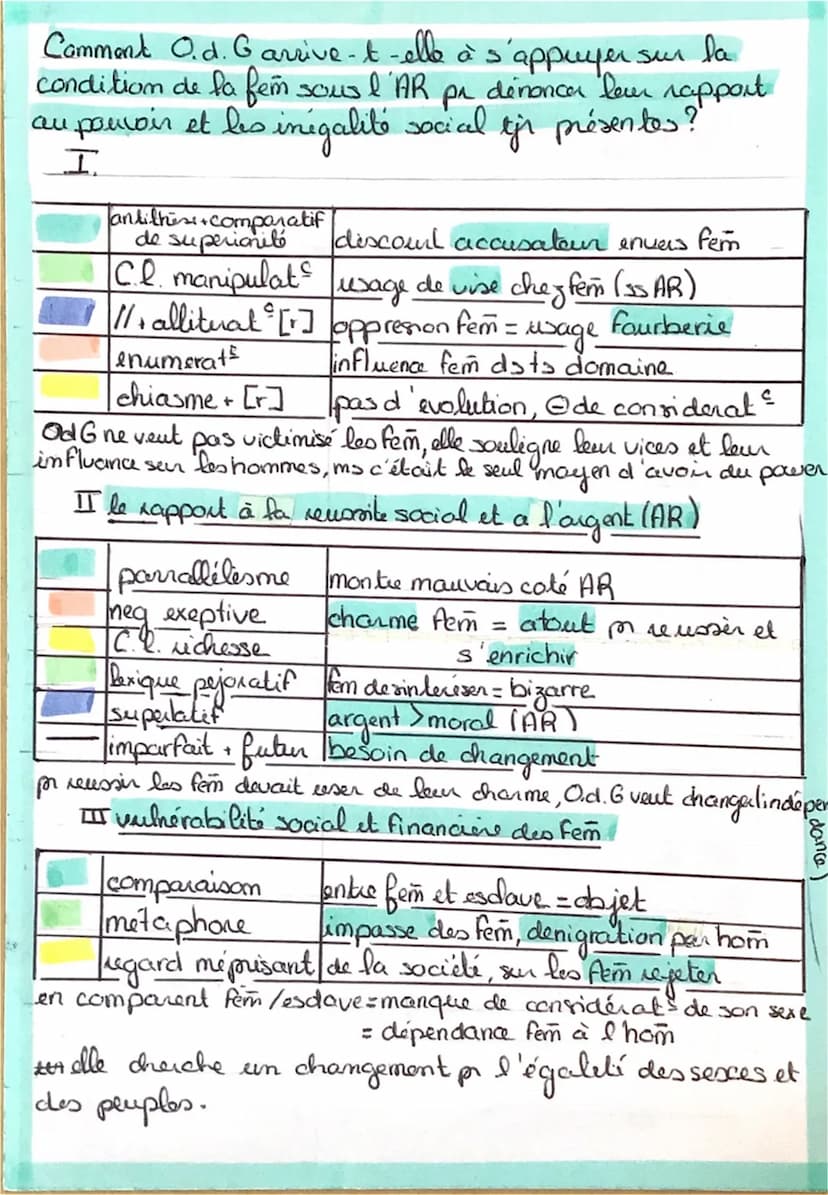 Comment O.d.G arrive-t-elle à s'appuyer sur la
condition de la fem̄ sous l'AR pr dénoncer leur rapport
au pouvoir et les inégalité social tjr présentes?
I.
antithèse+comparatif de superiorité | discourt accusateur envers fem̄
C.l. manipulat° | usage de vise chez fem̄ (ss AR)
// + alliterat° [r] | oppression fem̄ = usage fourberie
enumerat° | influence fem̄ ds ts domaine
chiasme + [r] | pas d'évolution, ⊖ de considerat°
OdG ne veut pas victimisé les fem̄, elle souligne leur vices et leur
influence sur les hommes, ms c'était le seul moyen d'avoir du power
II le rapport à la reussite social et a l'argent (AR)
parrallélesme | montre mauvais coté AR
neg exeptive | charme fem̄ = atout pr reussir et
C.l. richesse | s'enrichir
lexique pejoratif | fem desinteresser = bizarre
superlatif | argent > moral (AR)
imparfait + futur | besoin de changement
pr reussir les fem̄ devait user de leur charme, O.d.G veut changer(indépendance)
III vulnérabilité social et financière des fem̄
comparaison | entre fem̄ et esclave = objet
métaphore | impasse des fem̄, denigration par hom̄
regard méprisant | de la société, sur les fem̄ rejeter
en comparent fem̄/esclave=manque de considérat° de son sexe
= dépendance fem̄ à l'hom̄
elle cherche un changement pr l'égalité des sexces et
des peuples.